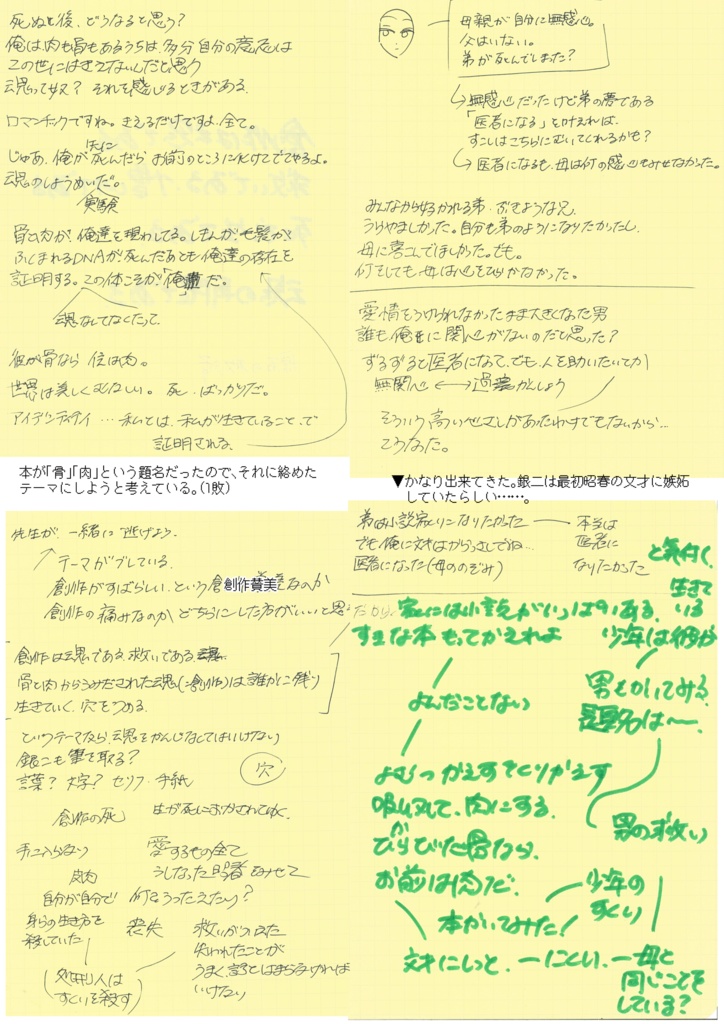 死ぬと後、どうなると思う?
俺は、肉も骨もあるうちは、多分自分の意志は
この世にはきえないんだと思う
魂って奴? それを感じるときがある
ロマンチックですね。きえるだけですよ、全て。
じゃあ、俺が先に死んだら お前のところに化けてでてやるよ。
魂のしょうめいだ。
実験
骨と肉が、俺達を現わしてる。
ふくまれるDNAが死んだあとも俺達の存在を
証明する。この体こそが「俺」だ。
魂なんてなくたって
彼が骨なら 位は肉。
世界は美しくむなしい。死、ばっかりだ。
アイデンティティ…私とは、私が生きていること、で
証明される
母親が自分に無感心。
父はいない。
弟が死んでしまった?
無感心だったけど弟の夢である
「医者になる」を叶えれば、
すこしはこちらにむいてくれるかも?
医者になるも、母は何の感心もみせなかった。
みんなから好かれる弟、ぶきような兄、
うらやましかった。自分も弟のようになりたかったし、
母に喜こんでほしかった。でも。
何をしても母は心をひらかなかった。
愛情をうけられなかったまま大きくなった男
誰も俺に関心がないのだと思った?
ずるずると医者になって、でも、人を助けたいとか
無関心 ←→ 過かんしょう
そういう高い心ざしがあったわけでもないから…
こうなった。
本が「骨」「肉」という題名だったので、それに絡めた
テーマにしようと考えている。(1敗)
▼かなり出来てきた。銀二は最初昭春の文才に嫉妬
していたらしい……。
先生が、一緒に逃げよう
テーマがブレている。
創作がすばらしい、という創作賛美なのか
創作の痛みなのか どちらにした方がいいと思う
創作は魂である、救いである
骨と肉からうみだされた魂(=創作)は誰かに残り
生きていく、穴をうめる。
というテーマなら、魂をかんじなくてはいけない
銀二も筆を取る?
言葉? 文字? セリフ・手紙
穴
創作の死 生が死におかされてゆく。
手に入らない
愛するもの全て
うしなった
皮肉
自分が自分で 何をうったえたい?
自らの生き方を
殺していた
喪失
救いがうばわれた
失われたことが
うまく
いけない
(処刑人は
すくいを殺す)
弟は小説家になりたかった
でも俺に文才はからっきしでね…
医者になった(母ののぞみ)
本当は
医者に
なりたかった
と気付く
生きて
いる
少年は彼が
家には小説がいっぱいある、
すきな本もってかえれよ
よんだことない
男もかいてみる
題名は〜。
よむつかえすをくりかえす
吸収して、肉にする。
お前は肉だ。
男の救い
少年の
すくい
本かいてみた!
文才にしっと。ーにくい、ー母と
同じことを
している?